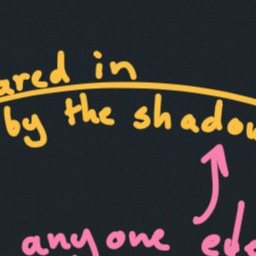 ared in
by the shadow
anyone